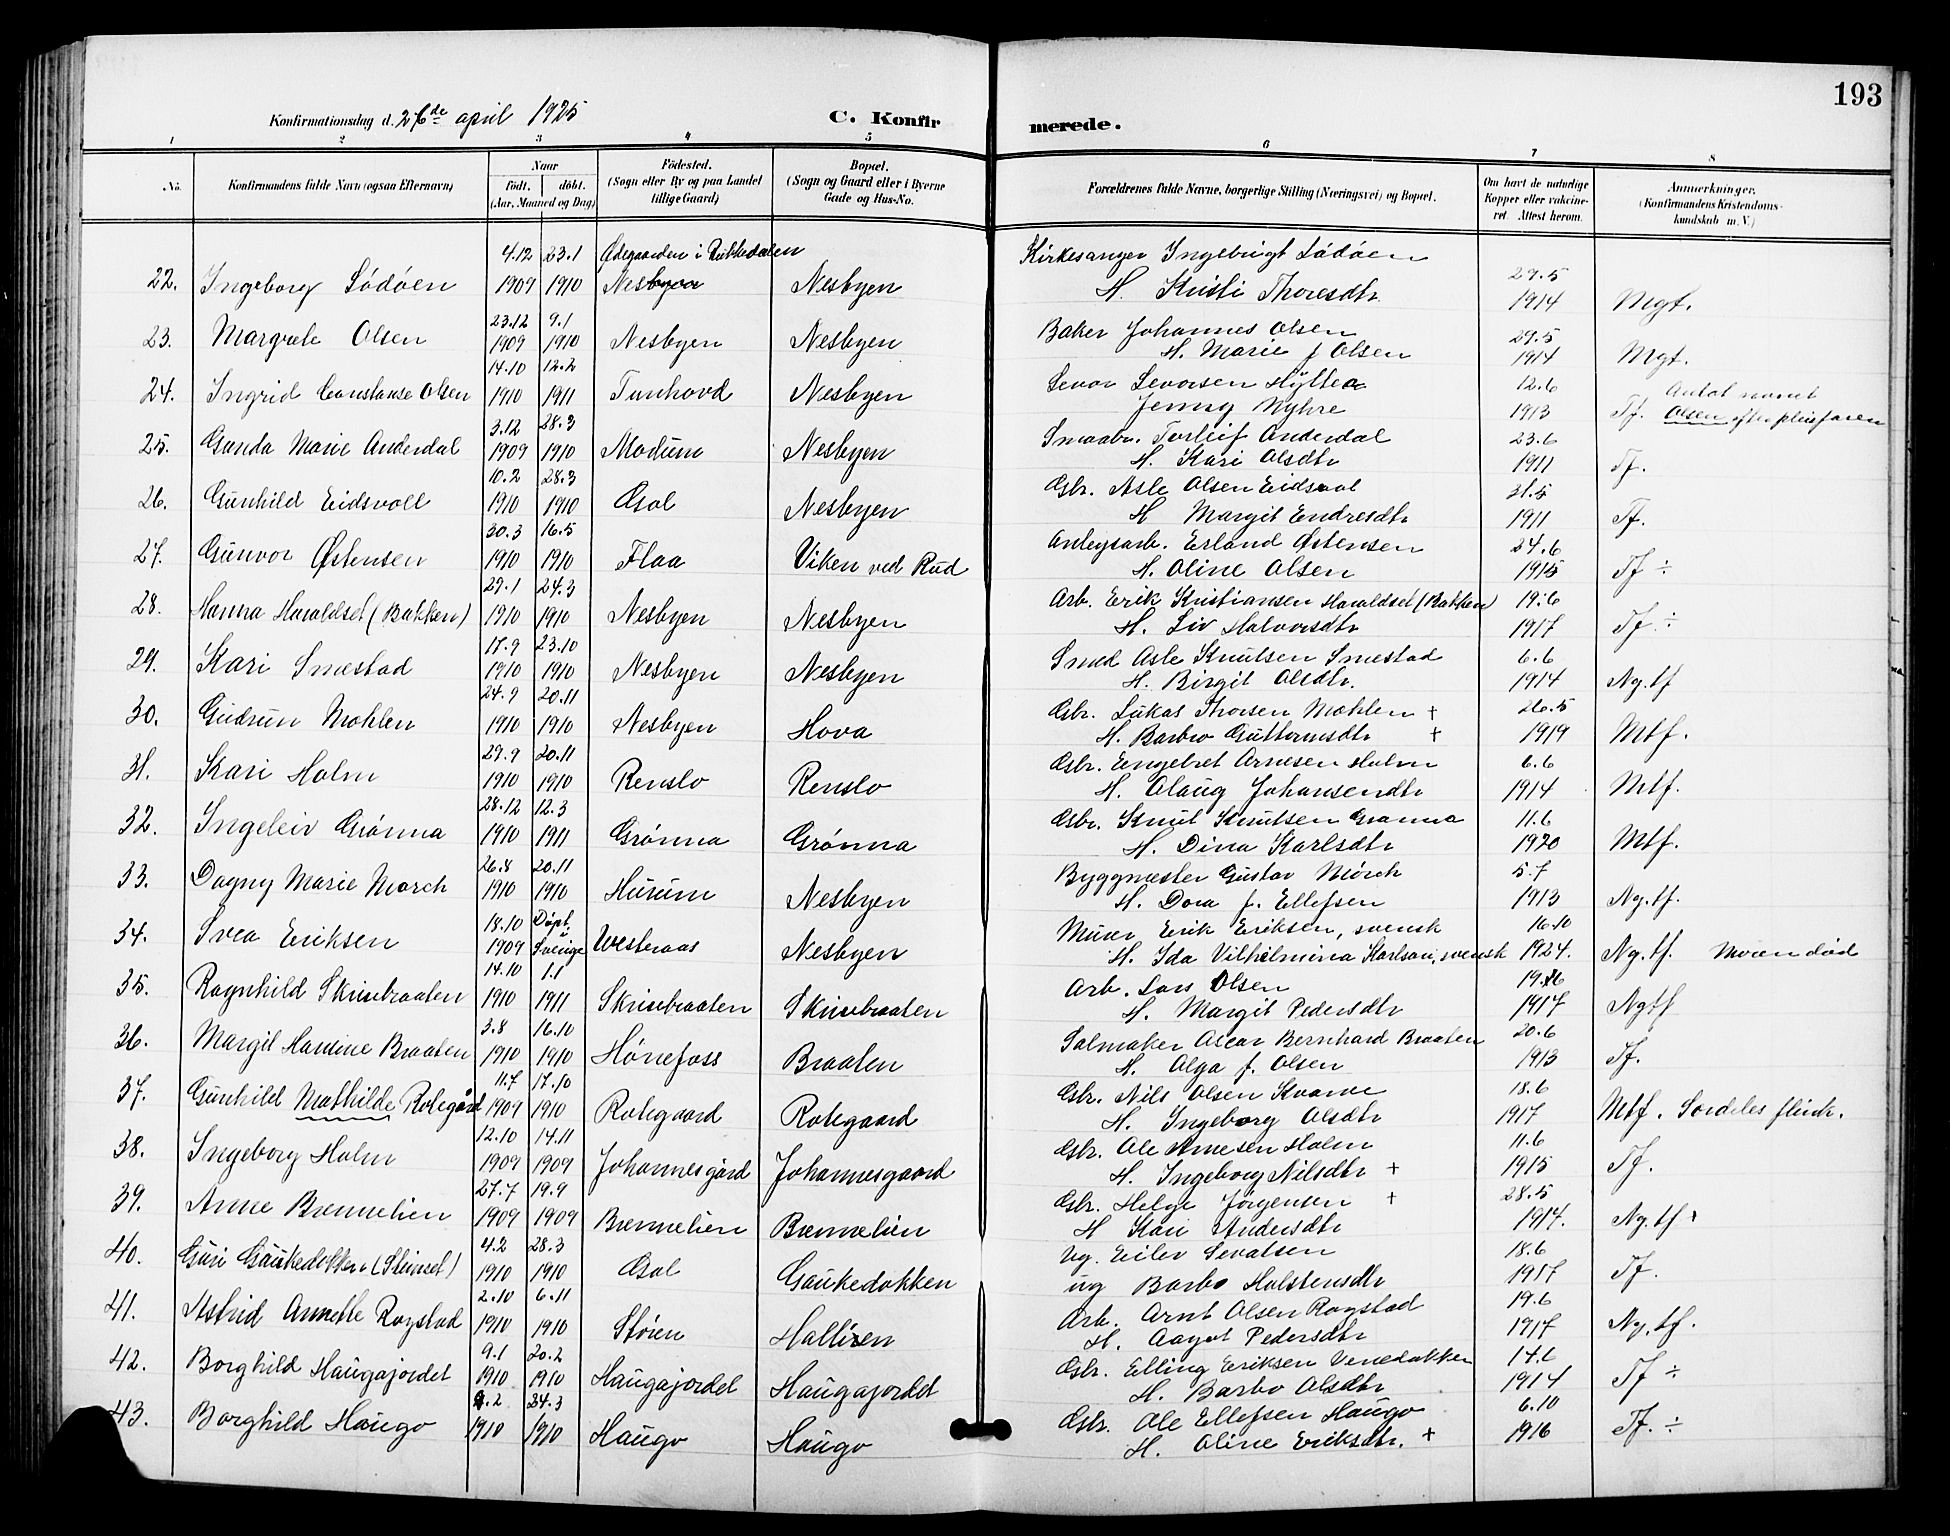 193
Konfirmationsdag d. 26de april 1925 C. Konfirmerede.
1 2 3 4 5 6 7 8
No. Konfirmandens fulde Navn (ogsaa Efternavn) Naar født. døbt. (Aar, Maaned og Dag) Fødested. (Sogn eller By og paa Landet tillige Gaard) Bopæl. (Sogn og Gaard eller i Byerne Gade og Hus-No. Forældrenes fulde Navne, borgerlige Stilling (Næringsvei) og Bopæl. Om havt de naturlige Kopper eller vaccineret. Attest herom. Anmerkninger. (Konfirmandens Kristendomskundskab m. V.)
4.12 23.1 Ødegaarden i Rukkedalen Kirkesanger Ingebrigt Lødøen 29.5
22. Ingeborg Lødøen 1909 1910 Nesbyen Nesbyen H. Kristi Thoresdtr 1914 Mgt.
23.12 9.1 Baker Johannes Olsen 29.5
23. Margrete Olsen 1909 1910 Nesbyen Nesbyen H. Marie f. Olsen 1914 Mgt.
14.10 12.2 Levor Levorsen 12.6 Antat navnet
24. Ingrid Constanse Olsen 1910 1911 Tunhovd Nesbyen Jenny Myhre 1913 Tf. Olsen efter pleiefaren
3.12 28.3 Smaabr. Torleif Anderdal 23.6
25. Gunda Marie Anderdal 1909 1910 Modum Nesbyen H. Kari Olsdtr 1911 Tf.
10.2 28.3 Gbr. Asle Olsen Eidsvol 31.5
26. Gunhild Eidsvoll 1910 1910 Gol Nesbyen H Margit Endresdtr 1911 Tf.
30.3 16.5 Anlegsarb. Erland Østensen 24.6
27. Gunvor Østensen 1910 1910 Flaa Viken ved Rud H. Oline Olsen 1915 Tf ÷
29.1 24.3 Arb. Erik Kristiansen Haraldset (Bakken) 19.6
28. Hanna Haraldset (Bakken) 1910 1910 Nesbyen Nesbyen H. Liv Halvorsdtr 1917 Tf. ÷
17.9 23.10 Smed Asle Knutsen Smestad 6.6
29. Kari Smestad 1910 1910 Nesbyen Nesbyen H. Birgit Olsdtr. 1914 Ng.tf
24.9 20.11 Gbr. Lukas Thorsen Møhlen + 26.5
30. Gudrun Møhlen 1910 1910 Nesbyen Hova H. Barbro Guttormsdtr + 1919 Mtf.
29.9 20.11 Gbr. Engebret Arnesen Holm 6.6
31. Kari Holm 1910 1910 Renslo Renslo H. Olaug Johansendtr 1914 Mtf.
28.12 12.3 Gbr. Knut Knutsen Grønna 11.6
32. Ingeleiv Grønna 1910 1911 Grønna Grønna H. Dina Karlsdtr 1920 Mtf.
26.8 20.11 Byggmester Gustav Mørch 5.7
33. Dagny Marie Mørch 1910 1910 Hurum Nesbyen H. Dora f. Ellefsen 1913 Ng.tf.
18.10 Døpt i Murer Erik Eriksen, svensk 16.10
34. Svea Eriksen 1909 Sverige Westeraas Nesbyen H. Ida Vilhelmina Karlson, svensk 1924. Ng.tf. Moren død
14.10 1.1 Arb. Lars Olsen 19.6
35. Ragnhild Skrivebraaten 1910 1911 Skrivebraaten Skrivebraaten H. Margit Pedersdtr 1917 Ngtf
3.8 16.10 Salmaker Oscar Bernhard Braaten 20.6
36. Margit Hardine Braaten 1910 1910 Hønefoss Braaten H. Olga f. Olsen 1913 Tf.
11.7 17.10 Gbr. Nils Olsen Kvarve 18.6
37. Gunhild Mathilde Rotegård 1909 1910 Rotegaard Rotegaard H. Ingeborg Olsdtr 1917 Mtf. Særdeles flink.
12.10 14.11 Gbr. Ole Arnesen Holm 11.6
38. Ingeborg Holm 1909 1909 Johannesgård Johannesgaard H. Ingeborg Nilsdtr + 1915 Tf.
27.7 19.9 Gbr. Helge Jørgensen + 28.5
39. Anne Brennelien 1909 1909 Brennelien Brennelien H Kari Andersdtr 1914. Ng.tf+
4.2 28.3 Ug. Eilev Sevatsen 18.6
40. Guri Gaukedokken (Skinset) 1910 1910 Gol Gaukedokken ug Barbo Holstensdtr 1917 Tf.
2.10 6.11 Arb. Arnt Olsen Rogstad 19.6
41. Astrid Annette Rogstad 1910 1910 Støien Hallixen H. Aagot Pedersdtr 1917 Ng.tf.
9.1 20.2 Gbr. Elling Eriksen Venedokken 14.6
42. Borghild Haugajordet 1910 1910 Haugajordet Haugajordet H. Barbo Olsdtr 1914 Tf ÷
4.2 24.3 Gbr. Ole Ellefsen Haugo 6.10
43. Borghild Haugo 1910 1910 Haugo Haugo H. Oline Eriksdtr. + 1916 Tf. ÷